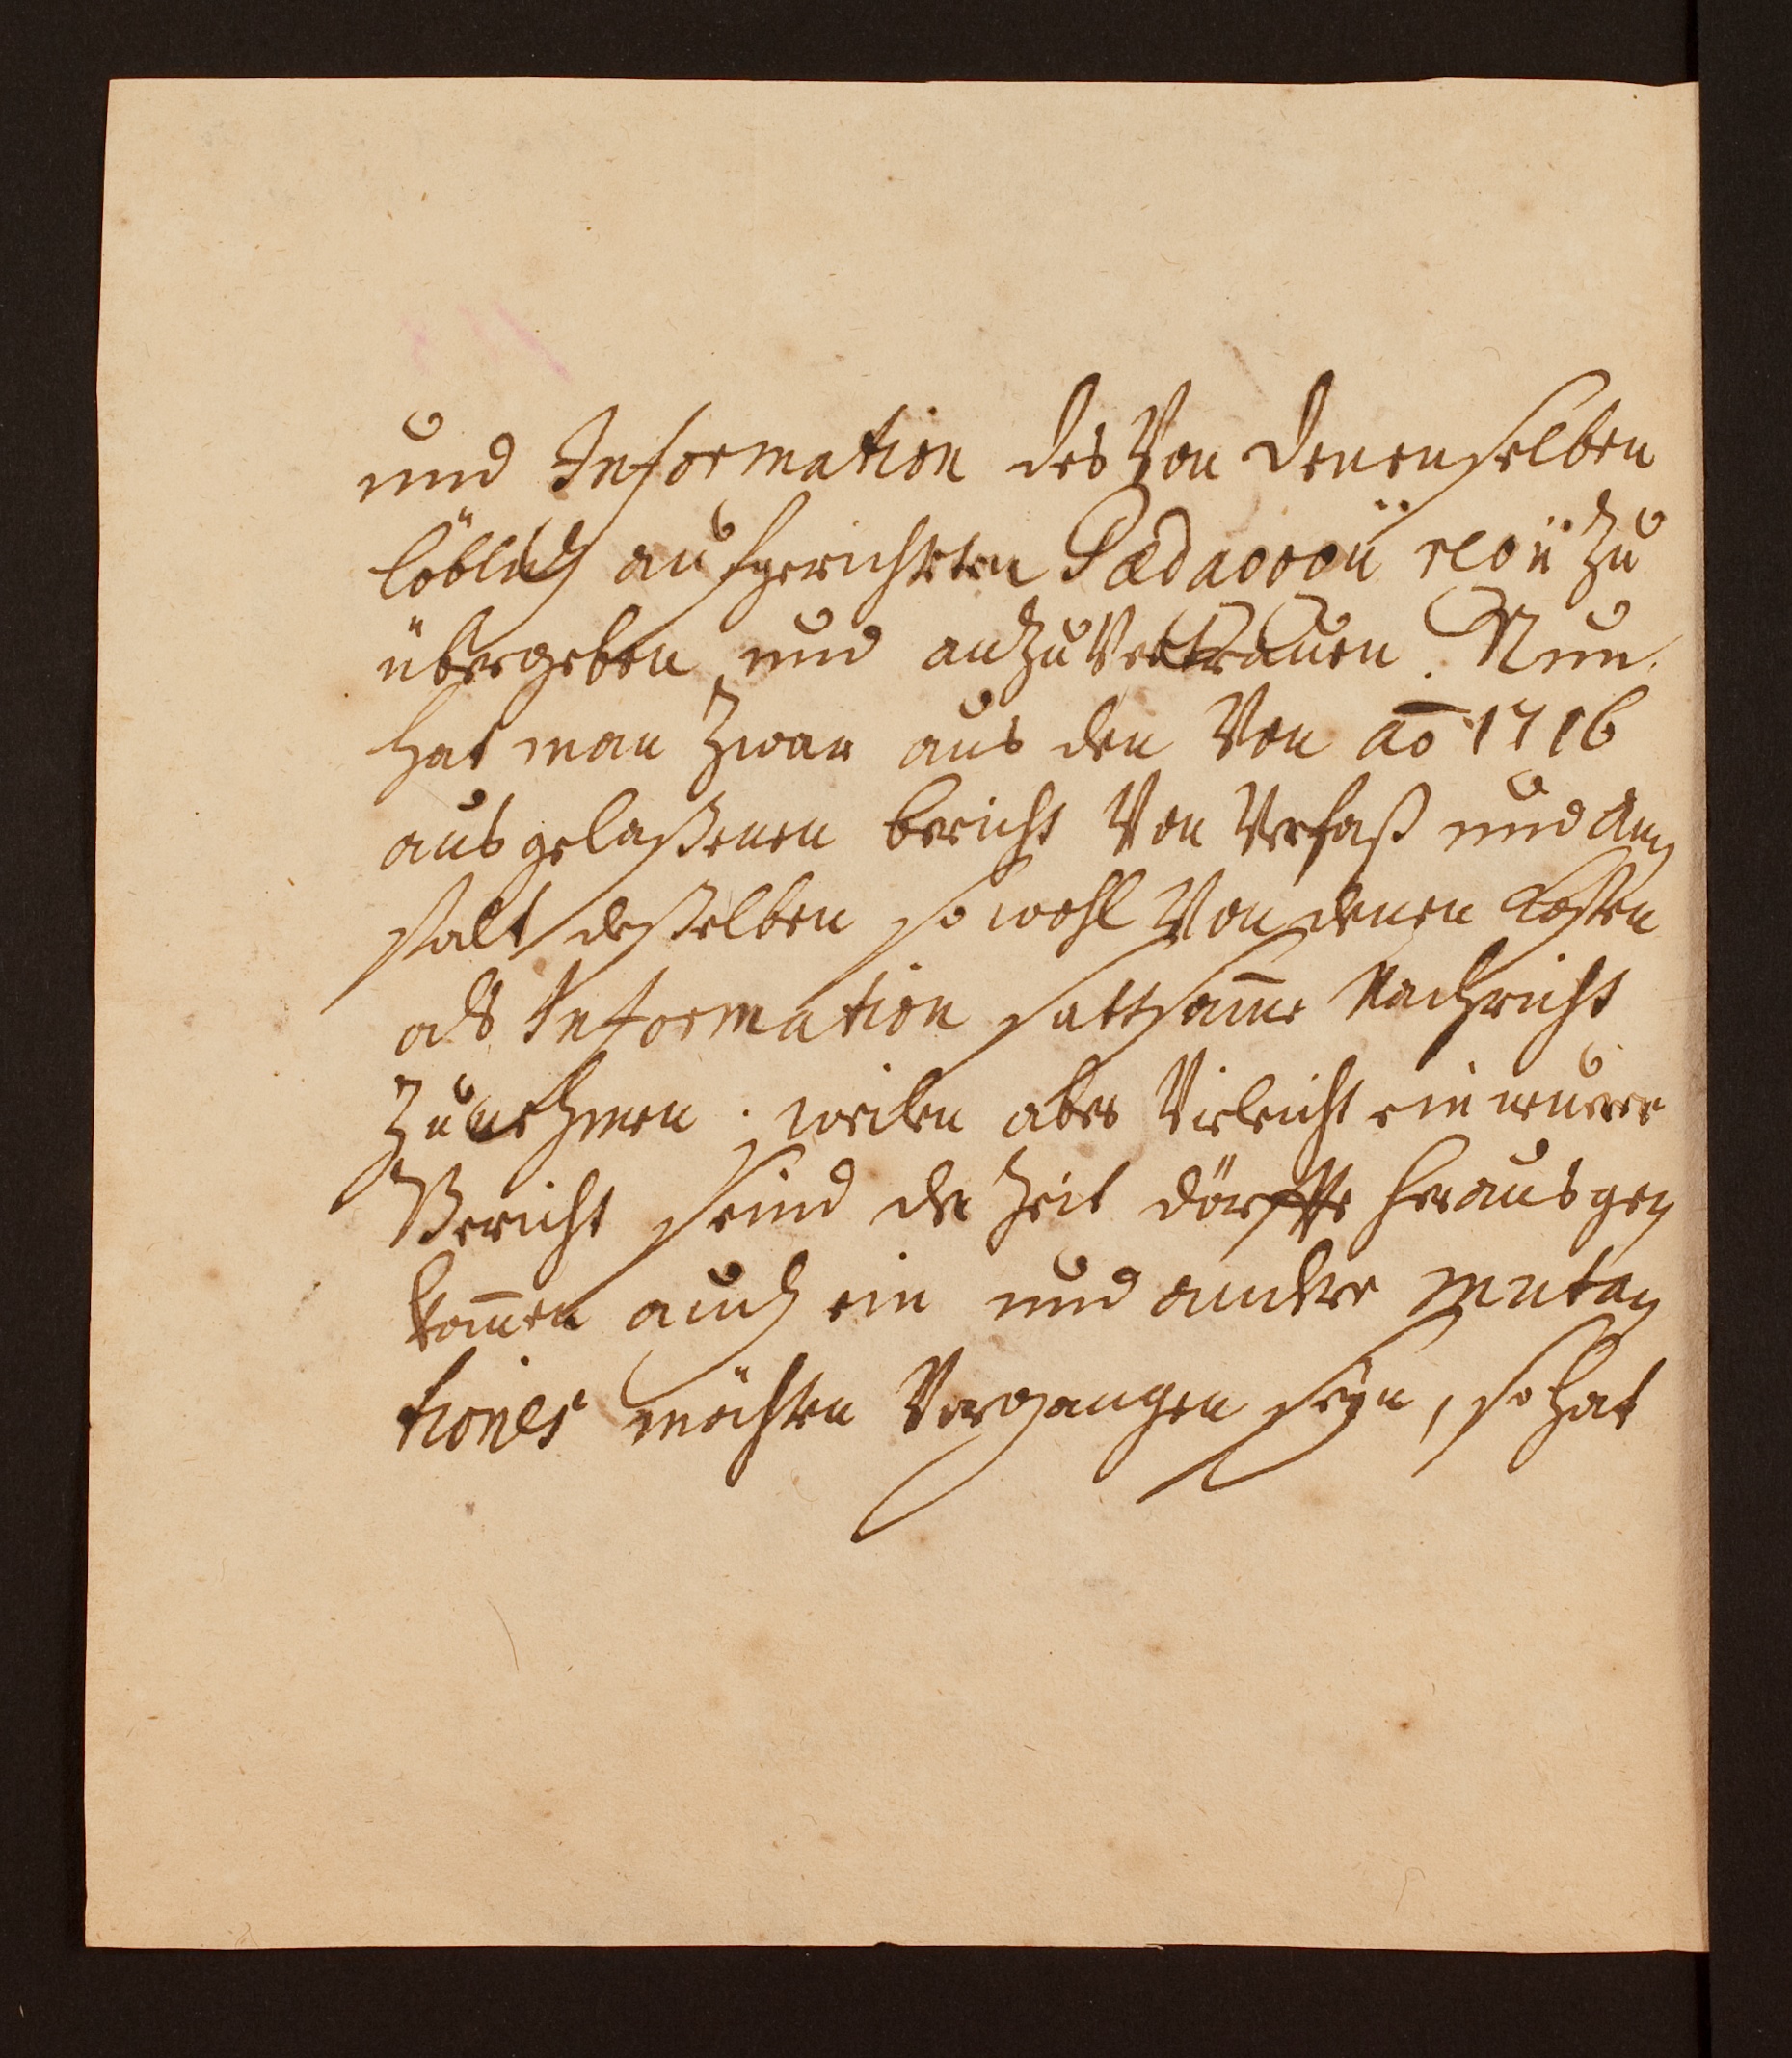 und Information des Von denenselben
löblich aufgerichteten Pædagogii regii zu
übergeben und anzuVertrauen. Nun
hat man zwar aus den Von ao 1716
ausgelaßenen bericht Von Verfaß und An¬
stalt deßelben so wohl Von denen Kosten
als Information sattsam̄e Nachricht
zunehmen. weilen aber Vieleicht ein neuere
Bericht seind der Zeit dörffte herausge¬
kom̄en auch ein und andere muta¬
tiones möchten Vorgangen seÿn, so hat